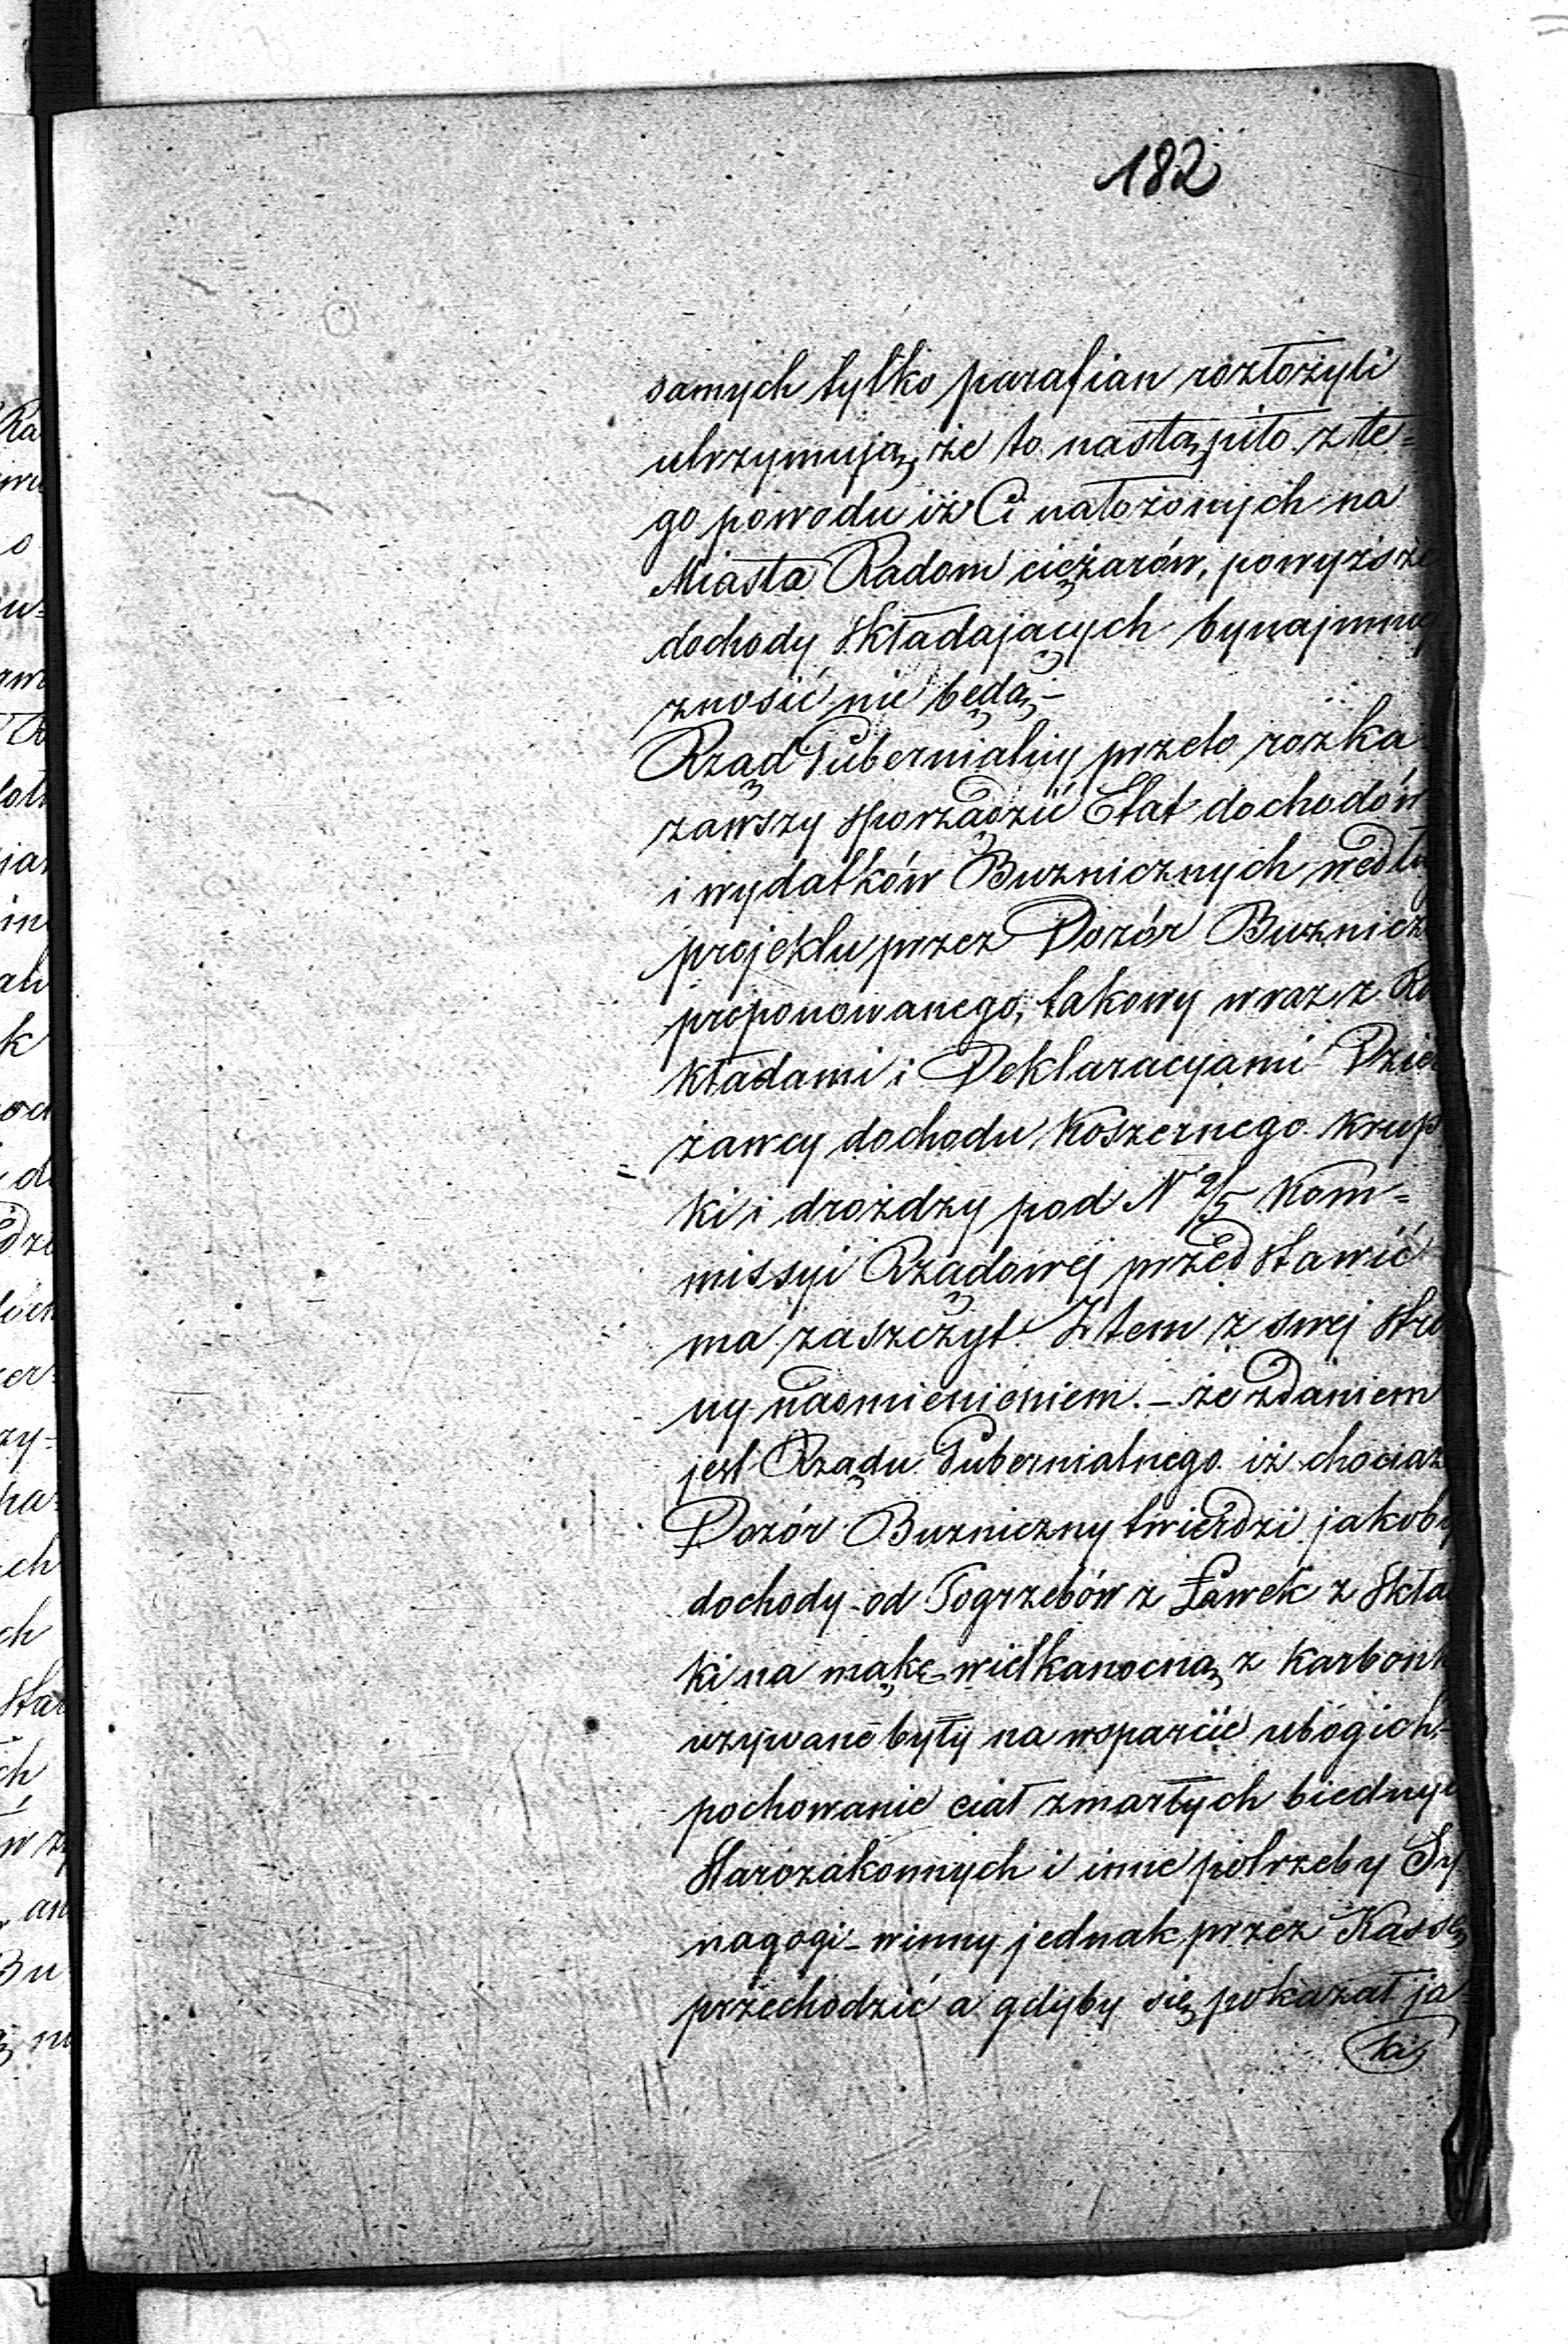 182
samych tylko parafian rozłożyli
utrzymują, że to nastąpiło z te=
go powodu iż Ci nałożonych na
Miasta Radom ciężarów, powyższe
dochody składających bynajmniej
znosić nie będą.–
Rząd Gubernialny przeto rozka
zawszy sporządzić Etat dochodów
i wydatków Buzniczych wedłu
projektu przez Dozór Buznicz
proponowanego, takowy wraz z Ro
kładami i Deklaracyami Dzier
żawcy dochodu Koszernego Krup
= ki i drożdży pod N 2/5 Kom=
missyi Rządowej przedstawić
ma zaszczyt. Z tem z swej stro
ny nadmienieniem. – że zdaniem
jest Rządu Gubernialnego iż chociaż
Dozór Buzniczny twierdzi jakoby
dochody od Pogrzebów z Ławek z Skła
ki na mąkę wielkanocną z Karbonk
używane były na wsparcie ubogich
pochowanie ciał zmarłych biednych
Starozakonnych i inne potrzeby Sy
nagogi – winny jednak przez Kassę
przechodzić a gdyby się pokazał ja
kiś